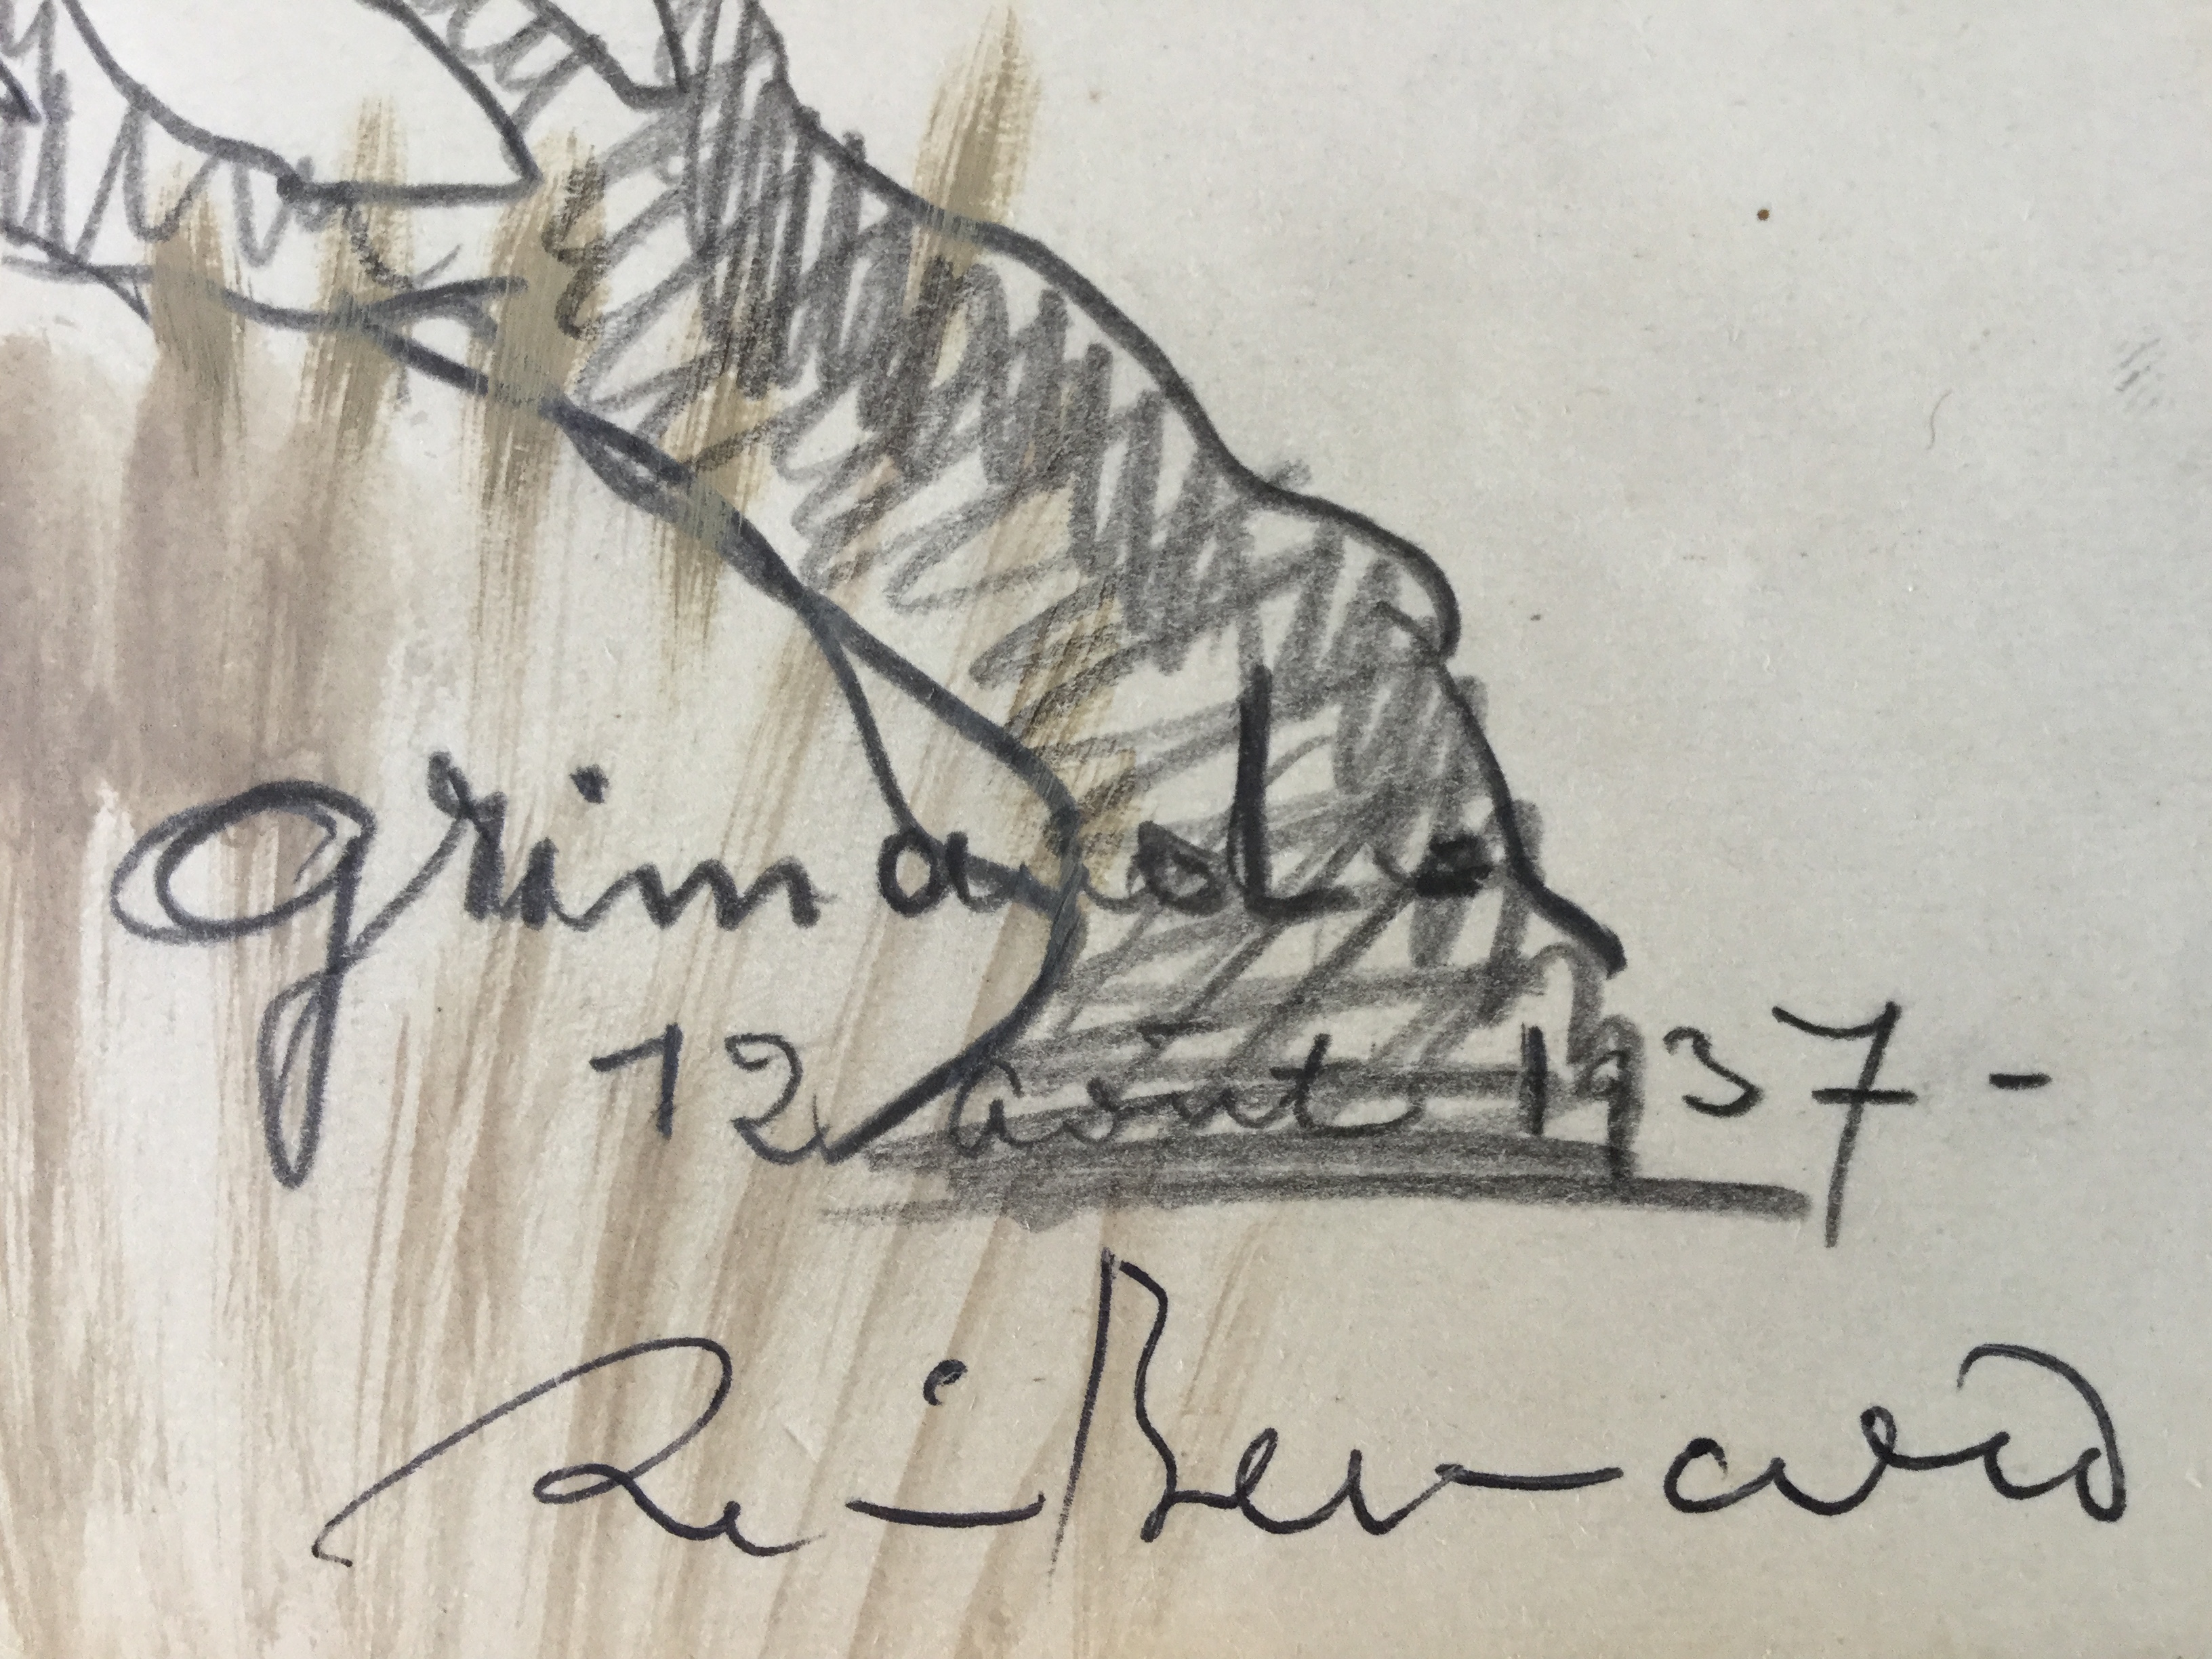 Grimaud -
12 août 1937 -
Bernard